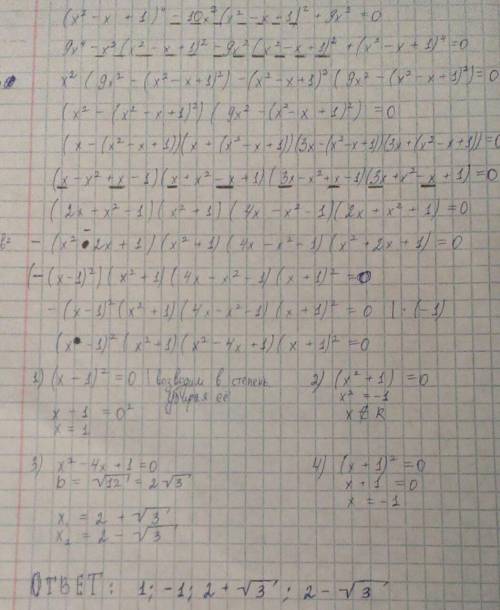 (x² - x + 1)⁴ - 10x²(x² - x + 1)² + 9x² = 0
9x⁴ - x²(x² - x + 1)² - 9x²(x² - x + 1)² + (x² - x + 1)⁴ = 0
x²(9x² - (x² - x + 1)²) - (x² - x + 1)²(9x² - (x² - x + 1)²) = 0
(x² - (x² - x + 1)²)(9x² - (x² - x + 1)²) = 0
(x - (x² - x + 1))(x + (x² - x + 1))(3x - (x² - x + 1))(3x + (x² - x + 1)) = 0
(x - x² + x - 1)(x + x² - x + 1)(3x - x² + x - 1)(3x + x² - x + 1) = 0
(2x + x² - 1)(x² + 1)(4x - x² - 1)(2x + x² + 1) = 0
- (x² - 2x + 1)(x² + 1)(4x - x² - 1)(x² + 2x + 1) = 0
(-(x - 1)²)(x² + 1)(4x - x² - 1)(x + 1)² = 0
-(x - 1)²(x² + 1)(4x - x² - 1)(x + 1)² = 0 | · (-1)
(x - 1)²(x² + 1)(x² - 4x + 1)(x + 1)² = 0
1) (x - 1)² = 0 | возводим в степень
убирая её
x - 1 = 0²
x = 1
2) (x² + 1) = 0
x² = -1
x ∉ R
3) x² - 4x + 1 = 0
D = √12 = 2√3
x₁ = 2 + √3
x₂ = 2 - √3
4) (x + 1)² = 0
x + 1 = 0
x = -1
ОТВЕТ: 1; -1; 2 + √3; 2 - √3